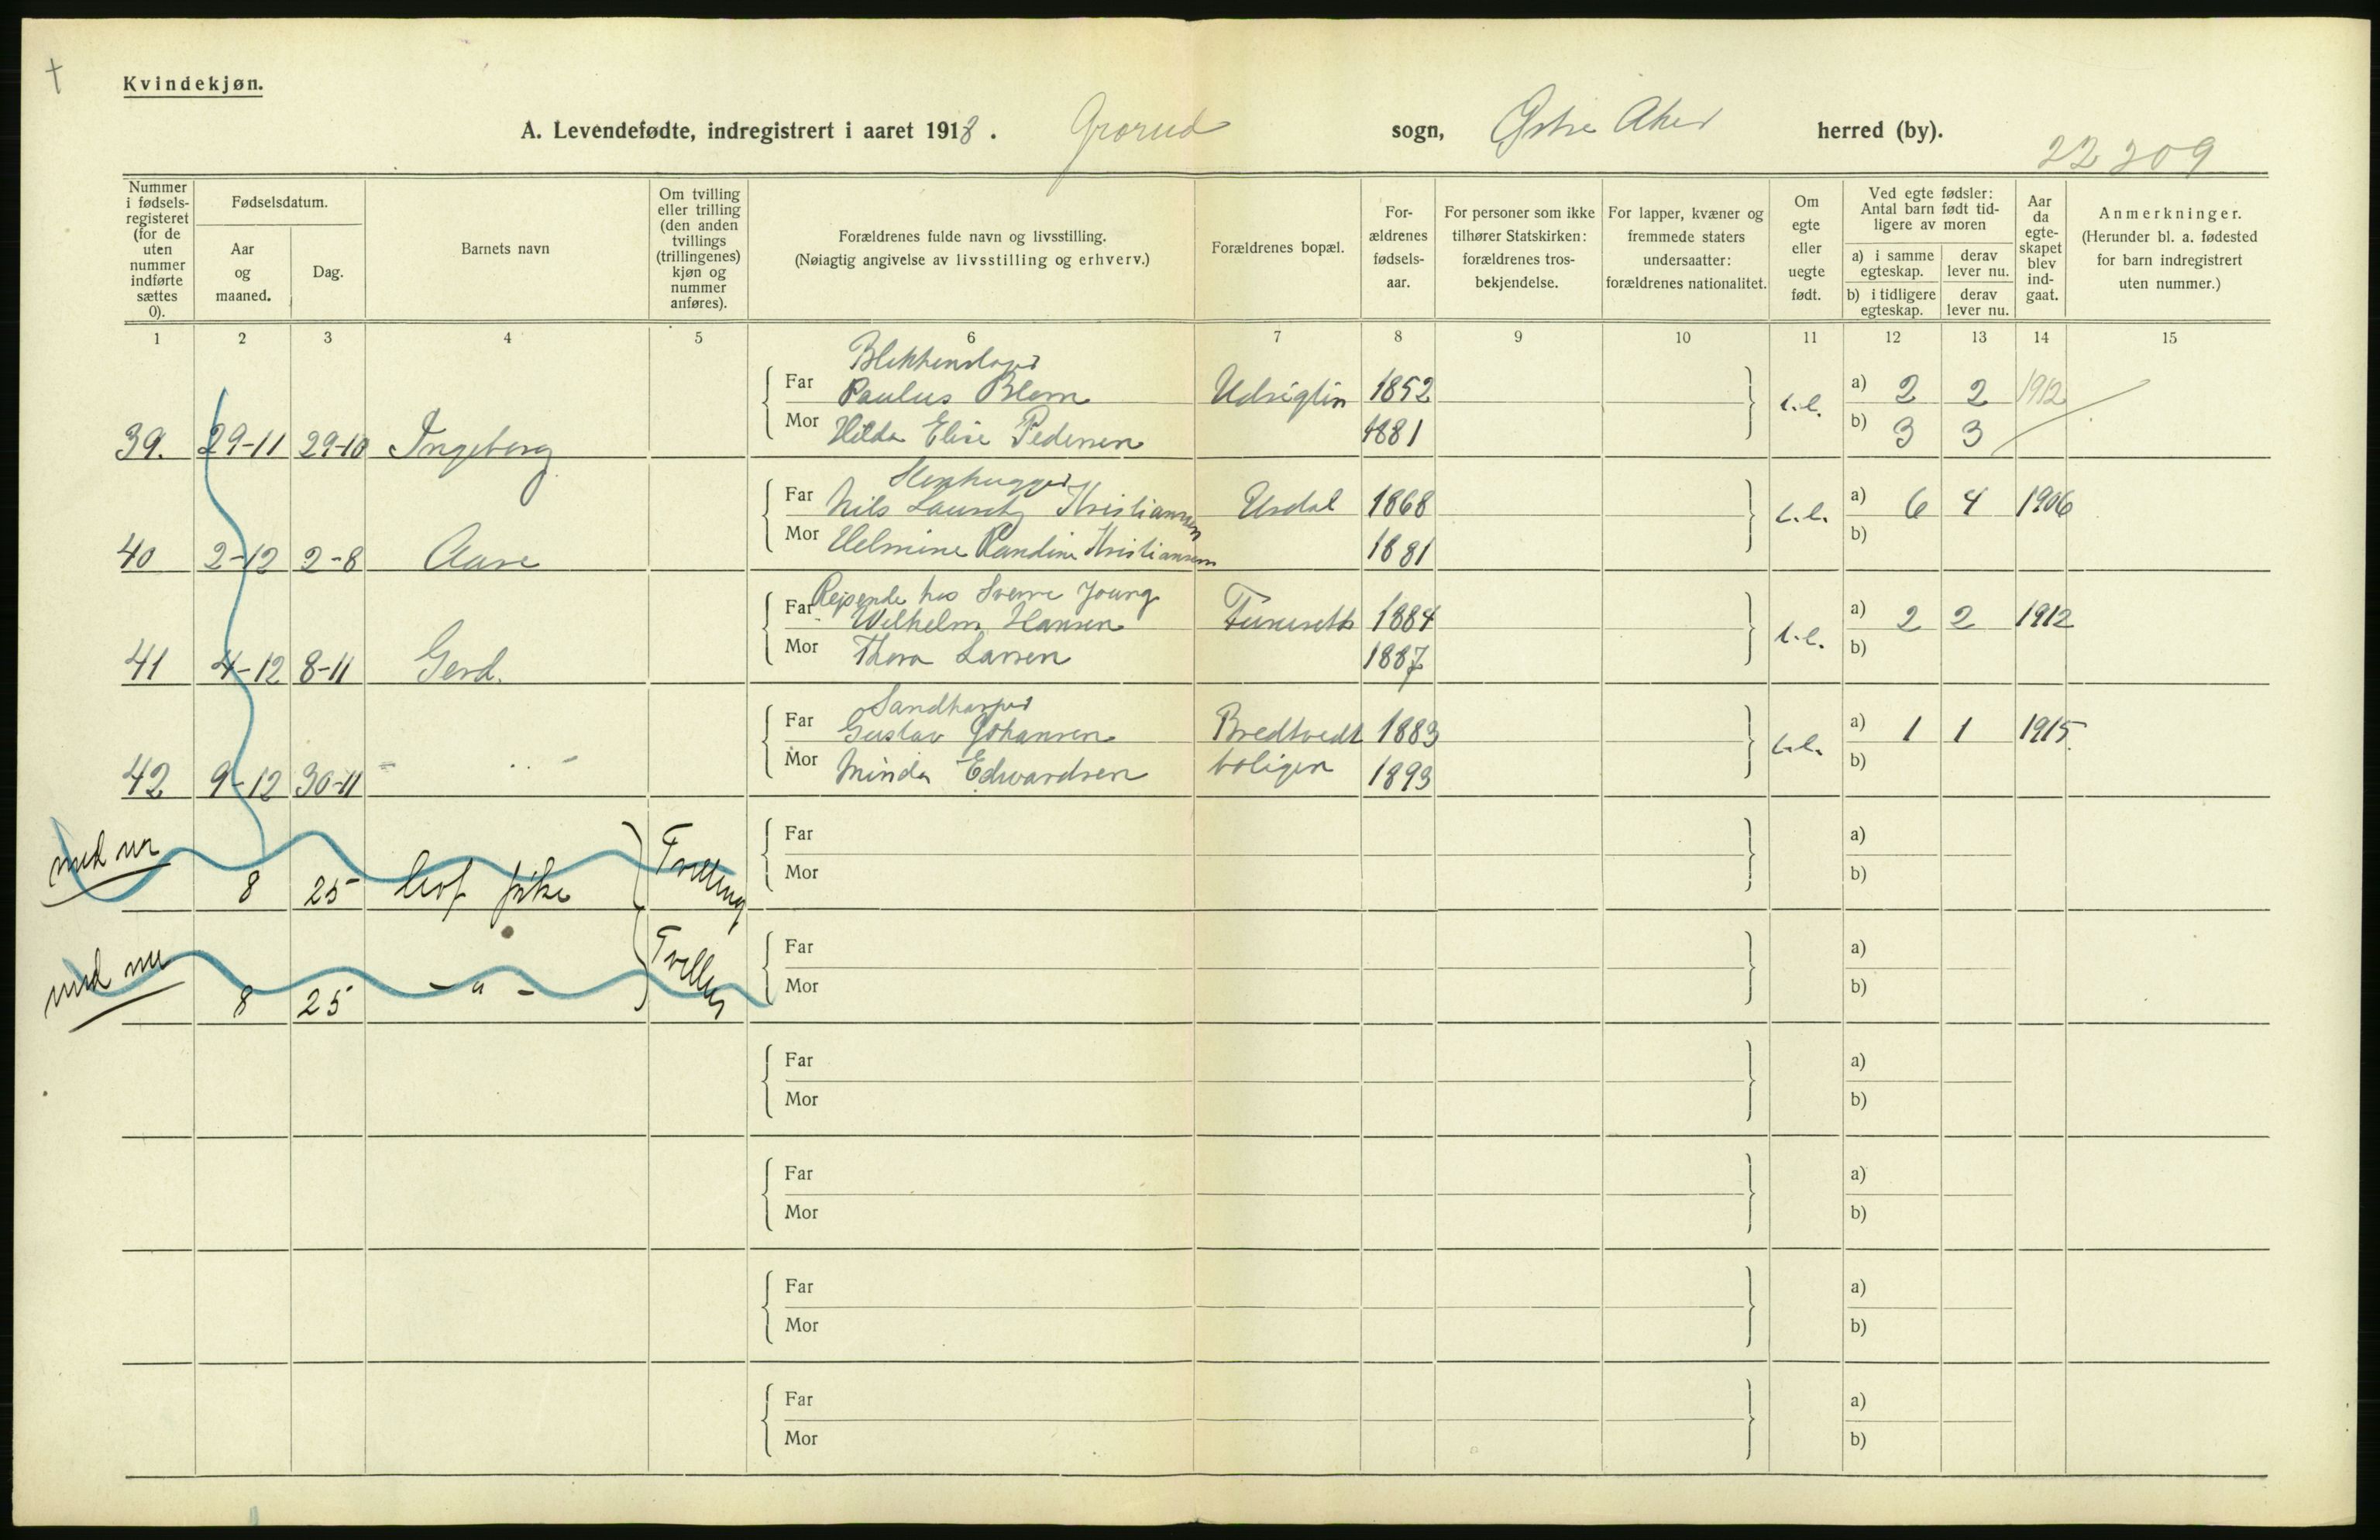 Kvindekjøn.
A. Levendefødte, indregistrert i aaret 1918. Grorud sogn, Østre Aker herred (by).
22 209
Nummer i fødselsregisteret (for de uten nummer indførte sættes 0).
Fødselsdatum.
Aar og maaned.
Dag.
Barnets navn
Om tvilling eller trilling (den anden tvillings (trillingenes) kjøn og nummer anføres).
Forældrenes fulde navn og livsstilling.
(Nøiagtig angivelse av livsstilling og erhverv.)
Forældrenes bopæl.
For-ældrenes fødsels-aar.
For personer som ikke tilhører Statskirken: forældrenes tros-bekjendelse.
For lapper, kvæner og fremmede staters undersaatter: forældrenes nationalitet.
Om egte eller uegte født.
Ved egte fødsler: Antal barn født tid-ligere av moren
a) i samme egteskap.
derav lever nu.
b) i tidligere egteskap.
derav lever nu.
Aar da egte-skapet blev ind-gaat.
Anmerkninger.
(Herunder bl. a. fødested for barn indregistrert uten nummer.)
1 2 3 4 5 6 7 8 9 10 11 12 13 14 15
Blikkenslager
Far Paulus Blom 1852 a) 2 2 1912
Mor Hilda Elise Pedersen 1881 b) 3 3
39. 29-11 29-10 Ingeborg
Stenhugger
Far Nils Lauritz Kristiansen Usdal 1868 a) 6 4 1906
Mor Helmine Randine Kristiansen 1881 b)
40 2-12 2-8 Aase
Reisende hos Sverre Young
Far Wilhelm Hansen Furuseth 1884 a) 2 2 1912
Mor Thora Larsen 1887 b)
41 4-12 8-11 Gerd.
Far Gustav Johansen Bredtvedt 1883 a) 1 1 1915
Mor Minda Edwardsen boligen 1893 b)
42 9-12 30-11
Far a)
Mor b)
8 25 levf pike Tvilling
Far a)
Mor b)
8 25 - " - Tvilling
Far a)
Mor b)
Far a)
Mor b)
Far a)
Mor b)
Far a)
Mor b)